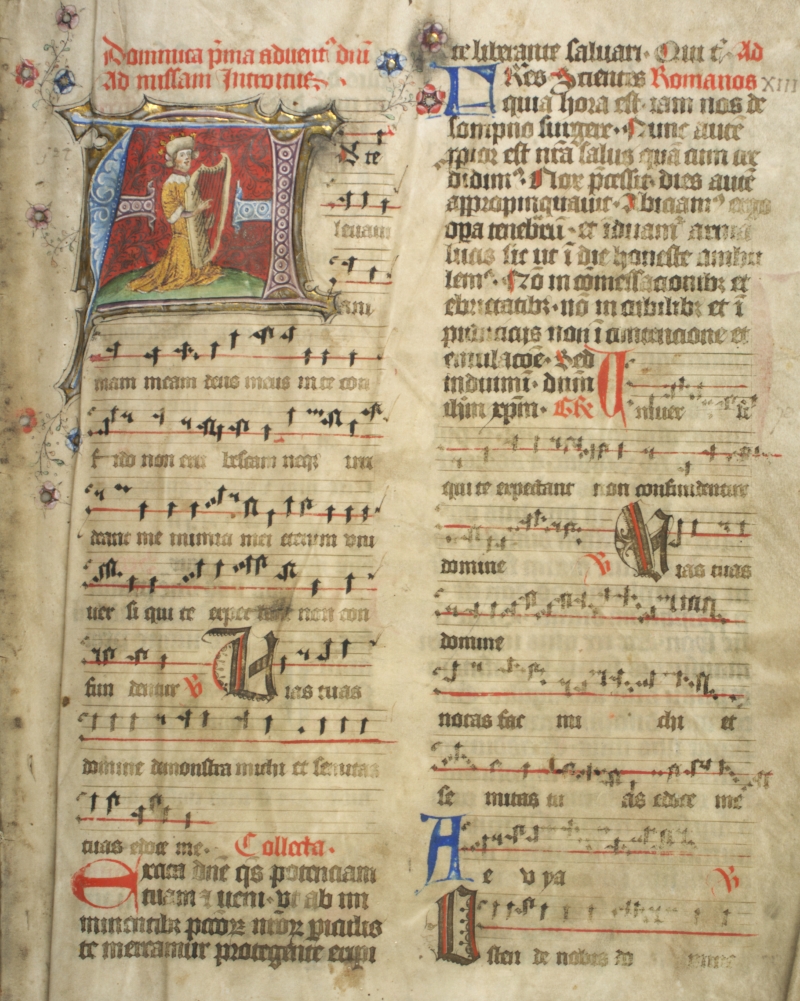 Dominica pma advent dni
Ad missam Introitus
A
te
levavi
ani
mam meam deus meus in te con
fido non eru bescam neqz irri
deant me inimici mei etenim uni
versi qui te expectant non con
fun dentur V Vias tuas
domine demonstra michi et semitas
tuas edoce me. Collecta.
Excita dne qs potenciam
tuam et veni. ut ab im
minentibz pctor nror piculis
te mereamur protegente eripi
te liberante salvari. Qui t Ad
Fres Scientes Romanos XIII
quia hora est iam nos de
sompno surgere. Nunc aute
ppior est nra salus qua cum cre
didim. Nox pcessit dies aute
appropinquavit. Abiciam ergo
opa tenebru. et iduam arma
lucis sic ut i die honeste ambu
lem. No in comessacionibz et
ebrietatibz. no in cubilibz et i
pudiciciis non i contencione et
emulacoe. Sed
induimi. dnm
ihm xpm. GR Univer si
qui te expectant non confundentur
domine V Vias tuas
domine
notas fac mi chi et
se mitas tu as edoce me
Ae v ya V
Osten de nobis do mine